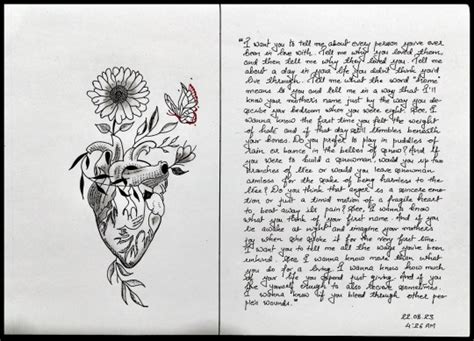 "I want you to tell me about every person you've ever
been in love with. Tell me why you loved them,
and then tell me why they loved you. Tell me
about a day in your life you didn't think you'd
live through. Tell me what the word "home"
means to you and tell me in a way that I'll
know your mother's name just by the way you de-
scribe your bedroom when you were eight. See, I
wanna know the first time you felt the weight
of hate and if that day still trembles beneath
your bones. Do you prefer to play in puddles of
rain or bounce in the bellies of snow? And if
you were to build a snowman, would you rip two
branches of tree or would you leave snowman
armless for the sake of being harmless to the
tree? Do you think that anger is a sincere emo-
tion or just a timid motion of a fragile heart
to beat away its pain? See, I wanna know
what you think of your first name. And if you
lie awake at night and imagine your mother's
joy when she spoke it for the very first time.
I want you to tell me all the ways you've been
unkind. See, I wanna know more than what
you do for a living. I wanna know how much
of your life you spend just giving. And if you
love yourself enough to also receive sometimes.
I wanna know if you bleed through other peo-
ple's wounds."
22.08.23
4:26 AM